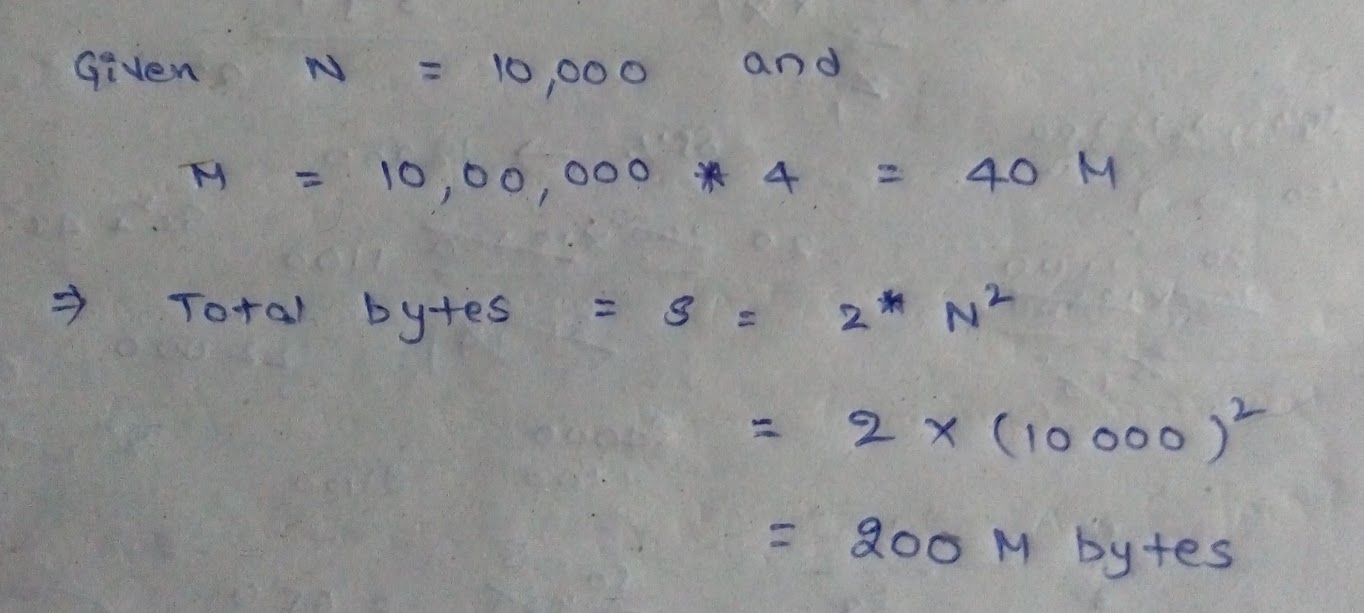 Given N = 10,000 and
M = 10,00,000 * 4 = 40 M
⇒ Total bytes = S = 2* N²
= 2 × (10 000)²
= 200 M bytes